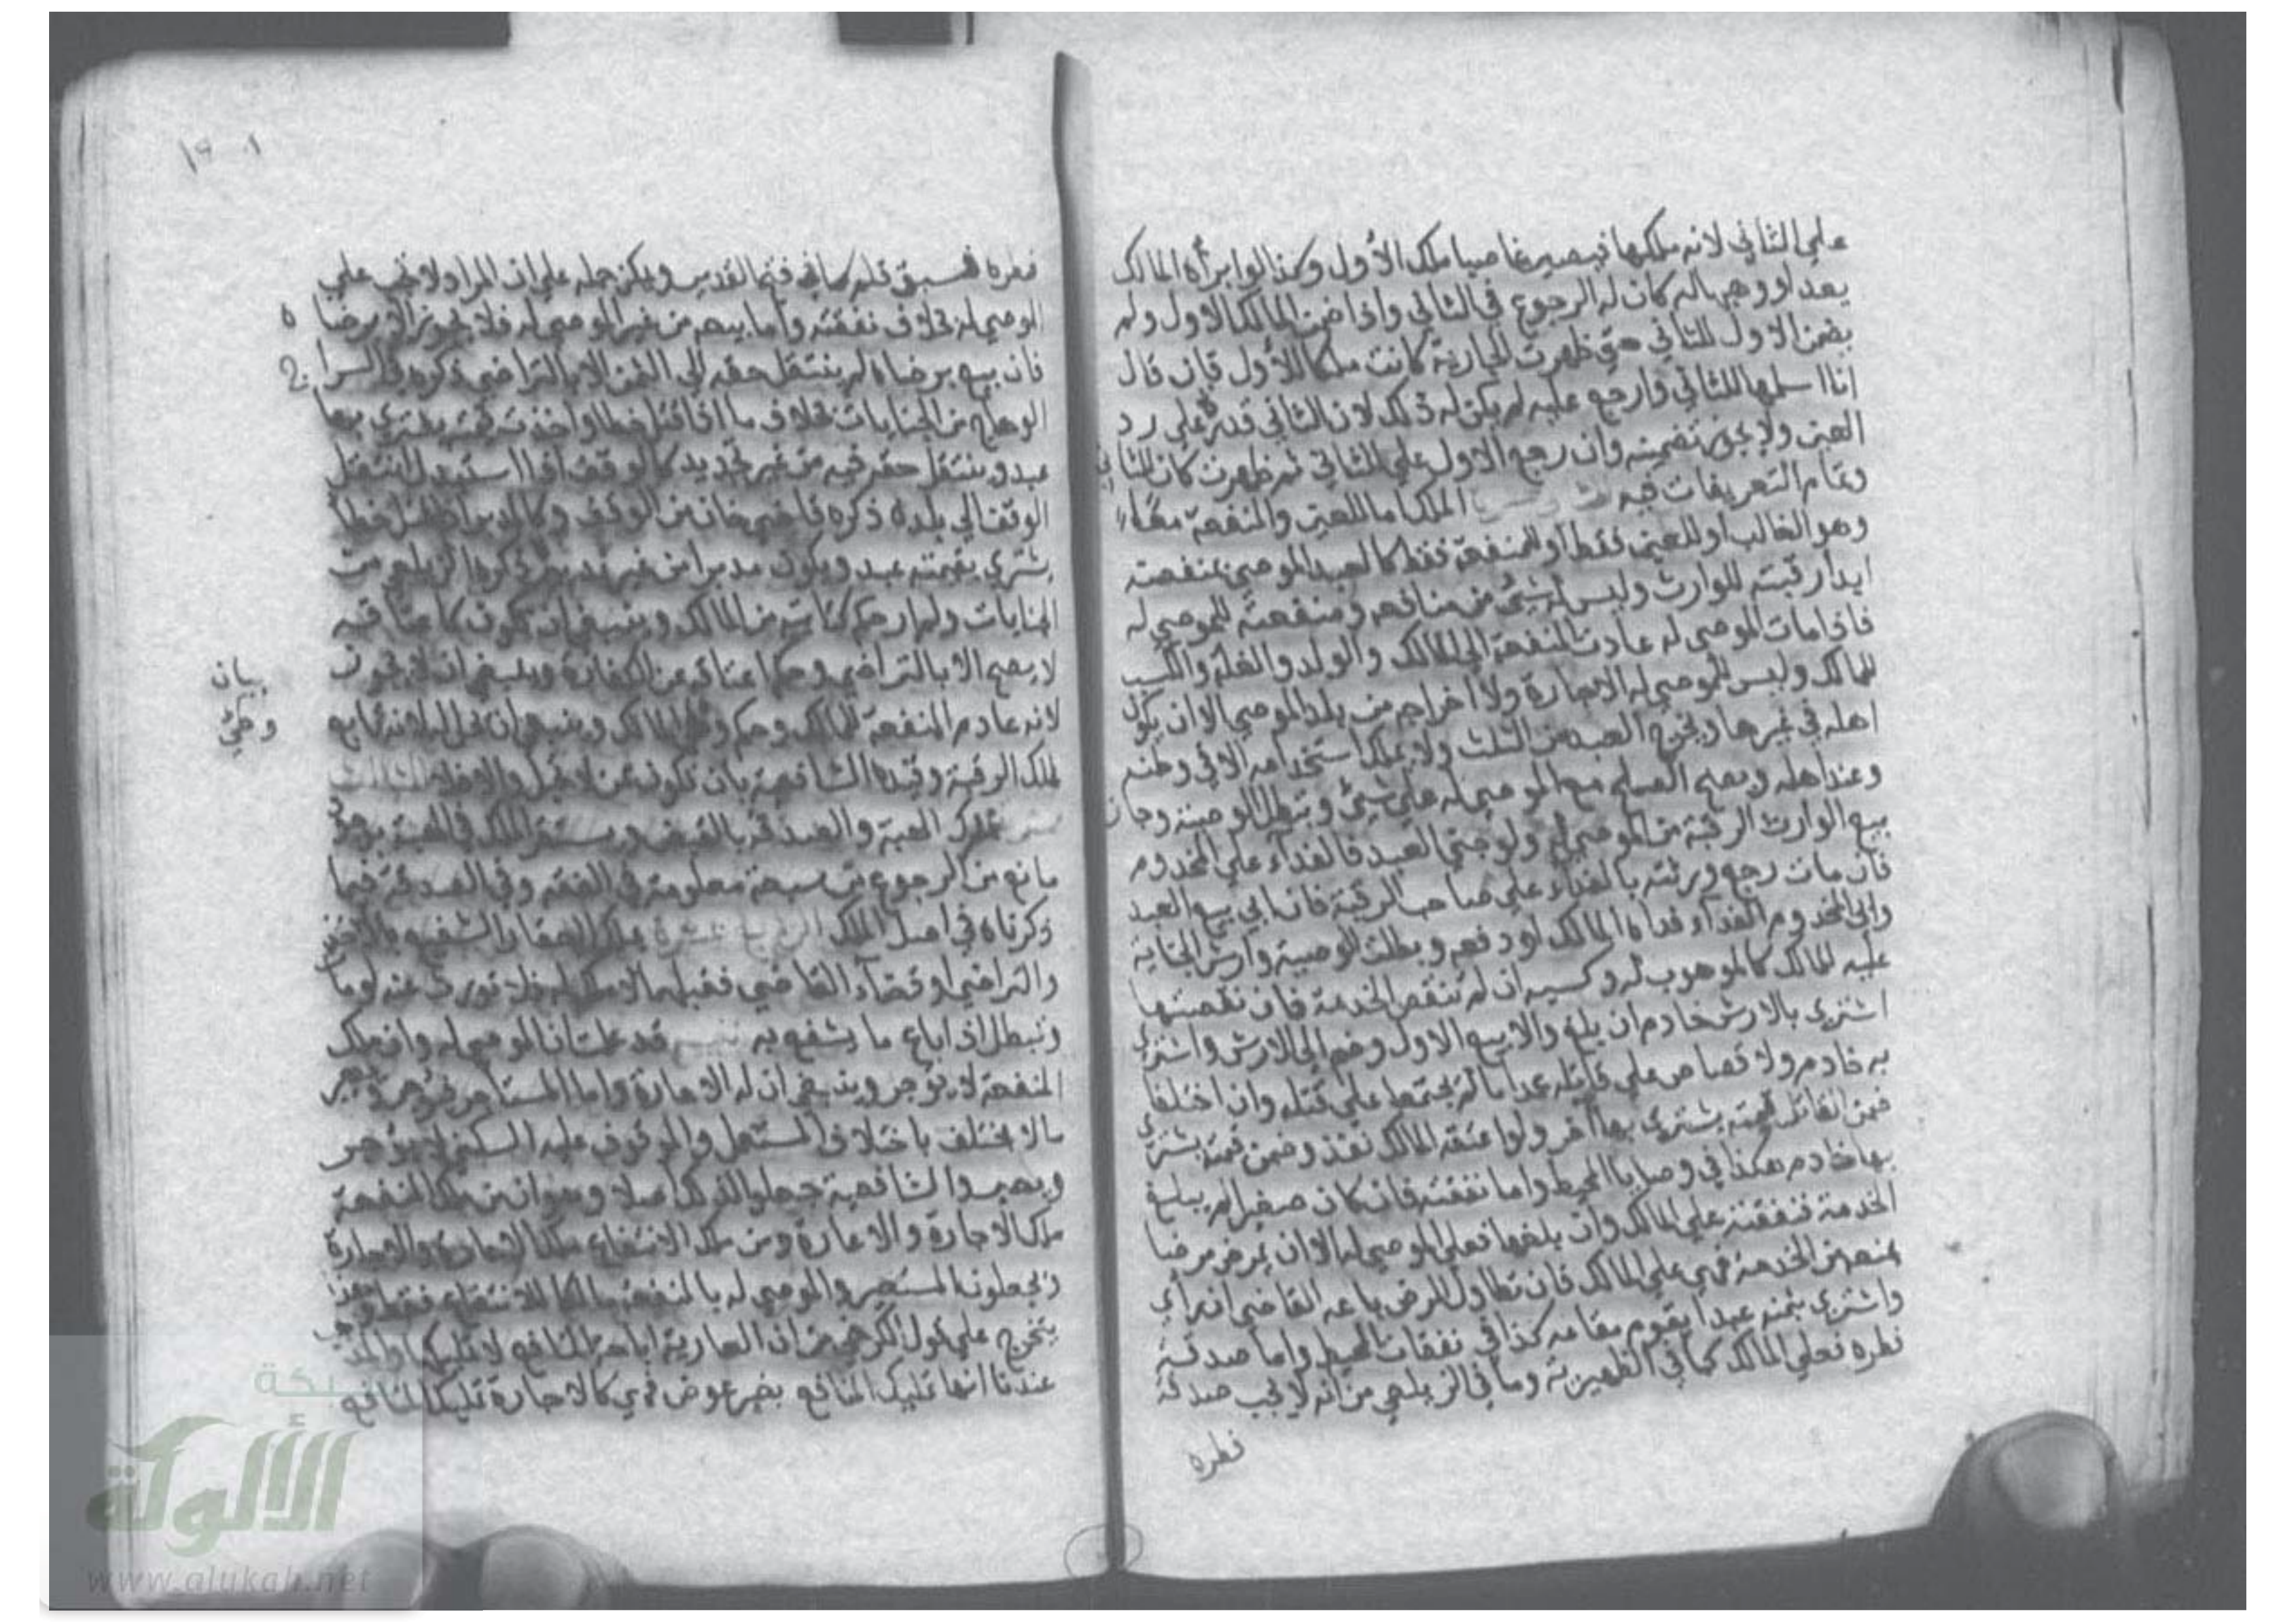 علي الثاني لانه ملكها فيصير غاصبا ملك الأول وكذا لو ابرأه المالك
بعد او وهبها له كان له الرجوع في الثاني واذا ضمن المالك الاول ولم
يضمن الاول للثاني حتى ظهرت الجارية كانت ملكا للأول فان قال
انا اسلمها للثاني وارجع عليه لم يكن له ذلك لان الثاني قدر علي رد
العين ولا يجوز تضمينه وان رجع الاول علي الثاني ثم ظهرت كان للثاني
وتمام التعريفات فيه الملك اما للعين والمنفعة معًا
وهو الغالب او للعين فقط او للمنفعة فقط كالعبد الموصي بمنفعته
ابدا رقبته للوارث وليس له شئ من منافعه ومنفعته للموصي له
فاذا مات الموصي له عادت المنفعة الي المالك والولد والغلة والكسب
للمالك وليس للموصي له الاجارة ولا اخراجه من بلد الموصي الا ان يكون
اهله في غيرها ويخرج العبد من الثلث ولا يملك استخدامه الا في وطنه
وعند اهله ويصح الصلح مع الموصي له علي شئ وتبطل الوصية وجاز
بيع الوارث الرقبة من الموصي له ولو جني العبد فالفداء علي المخدوم
فان مات رجع ورثته بالفداء علي صاحب الرقبة فان ابي بيع العبد
وابي المخدوم الفداء فداه المالك او دفعه وبطلت الوصية وارش الجناية
عليه للمالك كالموهوب له وكسبه ان لم تنقص الخدمة فان نقصتها
اشتري بالارش خادم ان بلغ والا بيع الاول وضم الي الارش واشتري
به خادم ولا قصاص علي قاتله عمدا ما لم يجتمعا علي قتله وان اختلفا
ضمن القاتل قيمته يشتري بها آخر ولو اعتقه المالك نفذ وضمن قيمته يشتري
بها خادم هكذا في وصايا المحيط واما نفقته فان كان صغيرا لم يبلغ
الخدمة فنفقته علي المالك وان بلغها فعلي الموصي له الا ان يمرض مرضا
يمنعه من الخدمة فهي علي المالك فان تطاول المرض باعه القاضي ان رأي
واشتري بثمنه عبدا يقوم مقامه كذا في نفقات المحيط واما صدقة
فطره فعلي المالك كما في الظهيرية وما في الزيلعي من انه لا تجب صدقة
فطره
فطره فسبق قلم كما في فتح القدير ويمكن حمله علي ان المراد لا تجب علي
الموصي له بخلاف نفقته واما بيعه من غير الموصي له فلا يجوز الا برضاه
فان بيع برضاه لم ينتقل حقه الي الثمن الا بالتراضي ذكره في السراج
الوهاج من الجنايات بخلاف ما اذا قتل خطأ واخذت قيمته يشتري بها
عبد وينتقل حقه فيه من غير تجديد كالوقف اذا استبدل انتقل
الوقف الي بدله ذكره قاضي خان من الوقف وكالمدبر اذا قتل خطأ
يشتري بقيمته عبد ويكون مدبرا من غير تدبير ذكره الزيلعي من
الجنايات ولم ار حكم كتابته من المالك وينبغي ان تكون كاعتاقه
لا يصح الا بالتراضي وحكم اعتاقه عن الكفارة وينبغي ان لا يجوز
لانه عادم المنفعة للمالك وحكم وطئ المالك وينبغي ان يحل له لانه تابع
بيان
وطئ
لملك الرقبة وقيده الشافعية بان تكون ممن لا تحبل والا فلا الثالث
تملك الهبة والصدقة بالقبض ويستقر الملك في الهبة بوجود
مانع من الرجوع من سبعة معلومة في الفقه وفي الصدقة فيما
ذكرناه في اصل الملك الرابع عشر يملك العقار الشفيع بالاخذ
والتراضي او قضاء القاضي فقبلهما لا ملك له فلا تورث عنه لو مات
وتبطل اذا باع ما يشفع به تنبيه قد علمت ان الموصي له وان ملك
المنفعة لا يؤجر وينبغي ان له الاعارة واما المستاجر فيؤجر ويعير
ما لا يختلف باختلاف المستعمل والموقوف عليه السكني لا يؤجر
ويعير والشافعية جعلوا لذلك اصلا وهو ان من ملك المنفعة
ملك الاجارة والاعارة ومن ملك الانتفاع ملك الاعارة لا الاجارة
ويجعلون المستعير والموصي له بالمنفعة مالكا للانتفاع فقط وهذا
يتخرج علي قول الكرخي من ان العارية اباحة المنافع لا تمليكها والمذهب
عندنا انها تمليك المنافع بغير عوض فهي كالاجارة تمليك المنافع
شبكة
الألوكة
www.alukah.net